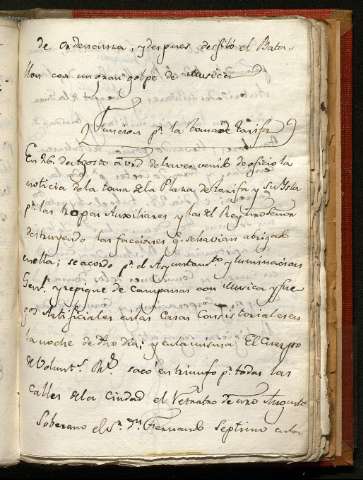 de ordenanza, y despues desfiló el Bata-
llon con un gran golpe de musica
Funcion pr. la toma de tarifa
En 26. de Agosto a virtud de haver venido de oficio la
noticia de la toma de la Plaza de tarifa y su Isla
pr. las tropas Auxiliares y las del Rey ntro Señor
destruyendo las facciones q. se havian abrigado
en ella; se acordo pr. el Ayuntamto. yluminacion
Genl. y repique de campanas con musica y fue
gos Artificiales en las Casas Consistoriales en
la noche de dho dia; y en la misma El Cuerpo
de Volunts. Rs. saco en triunfo pr. todas las
calles de la ciudad el Retrato de nro Augusto
Soberano el Sr. Dn. Fernando Septimo en los